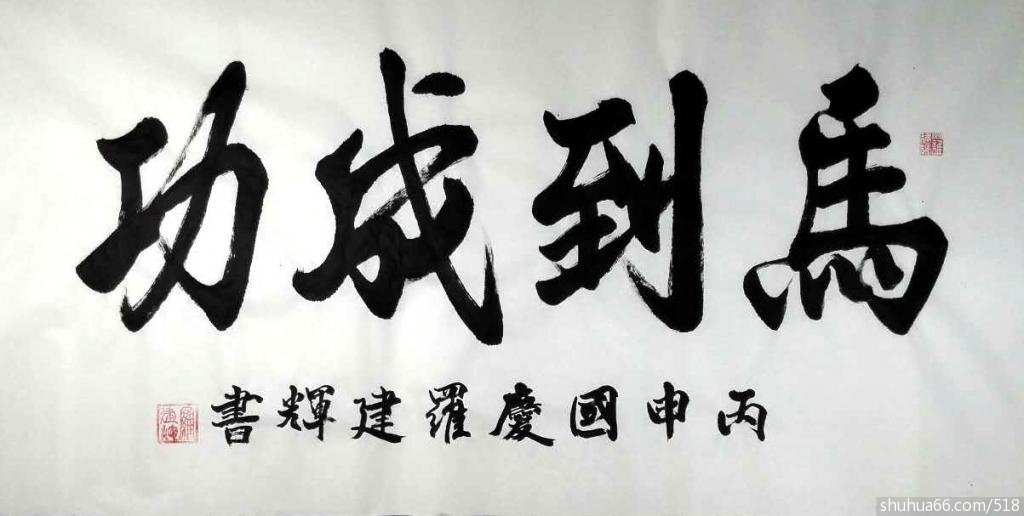 馬到成功
丙申國慶羅建輝書
shuhua66.com/518